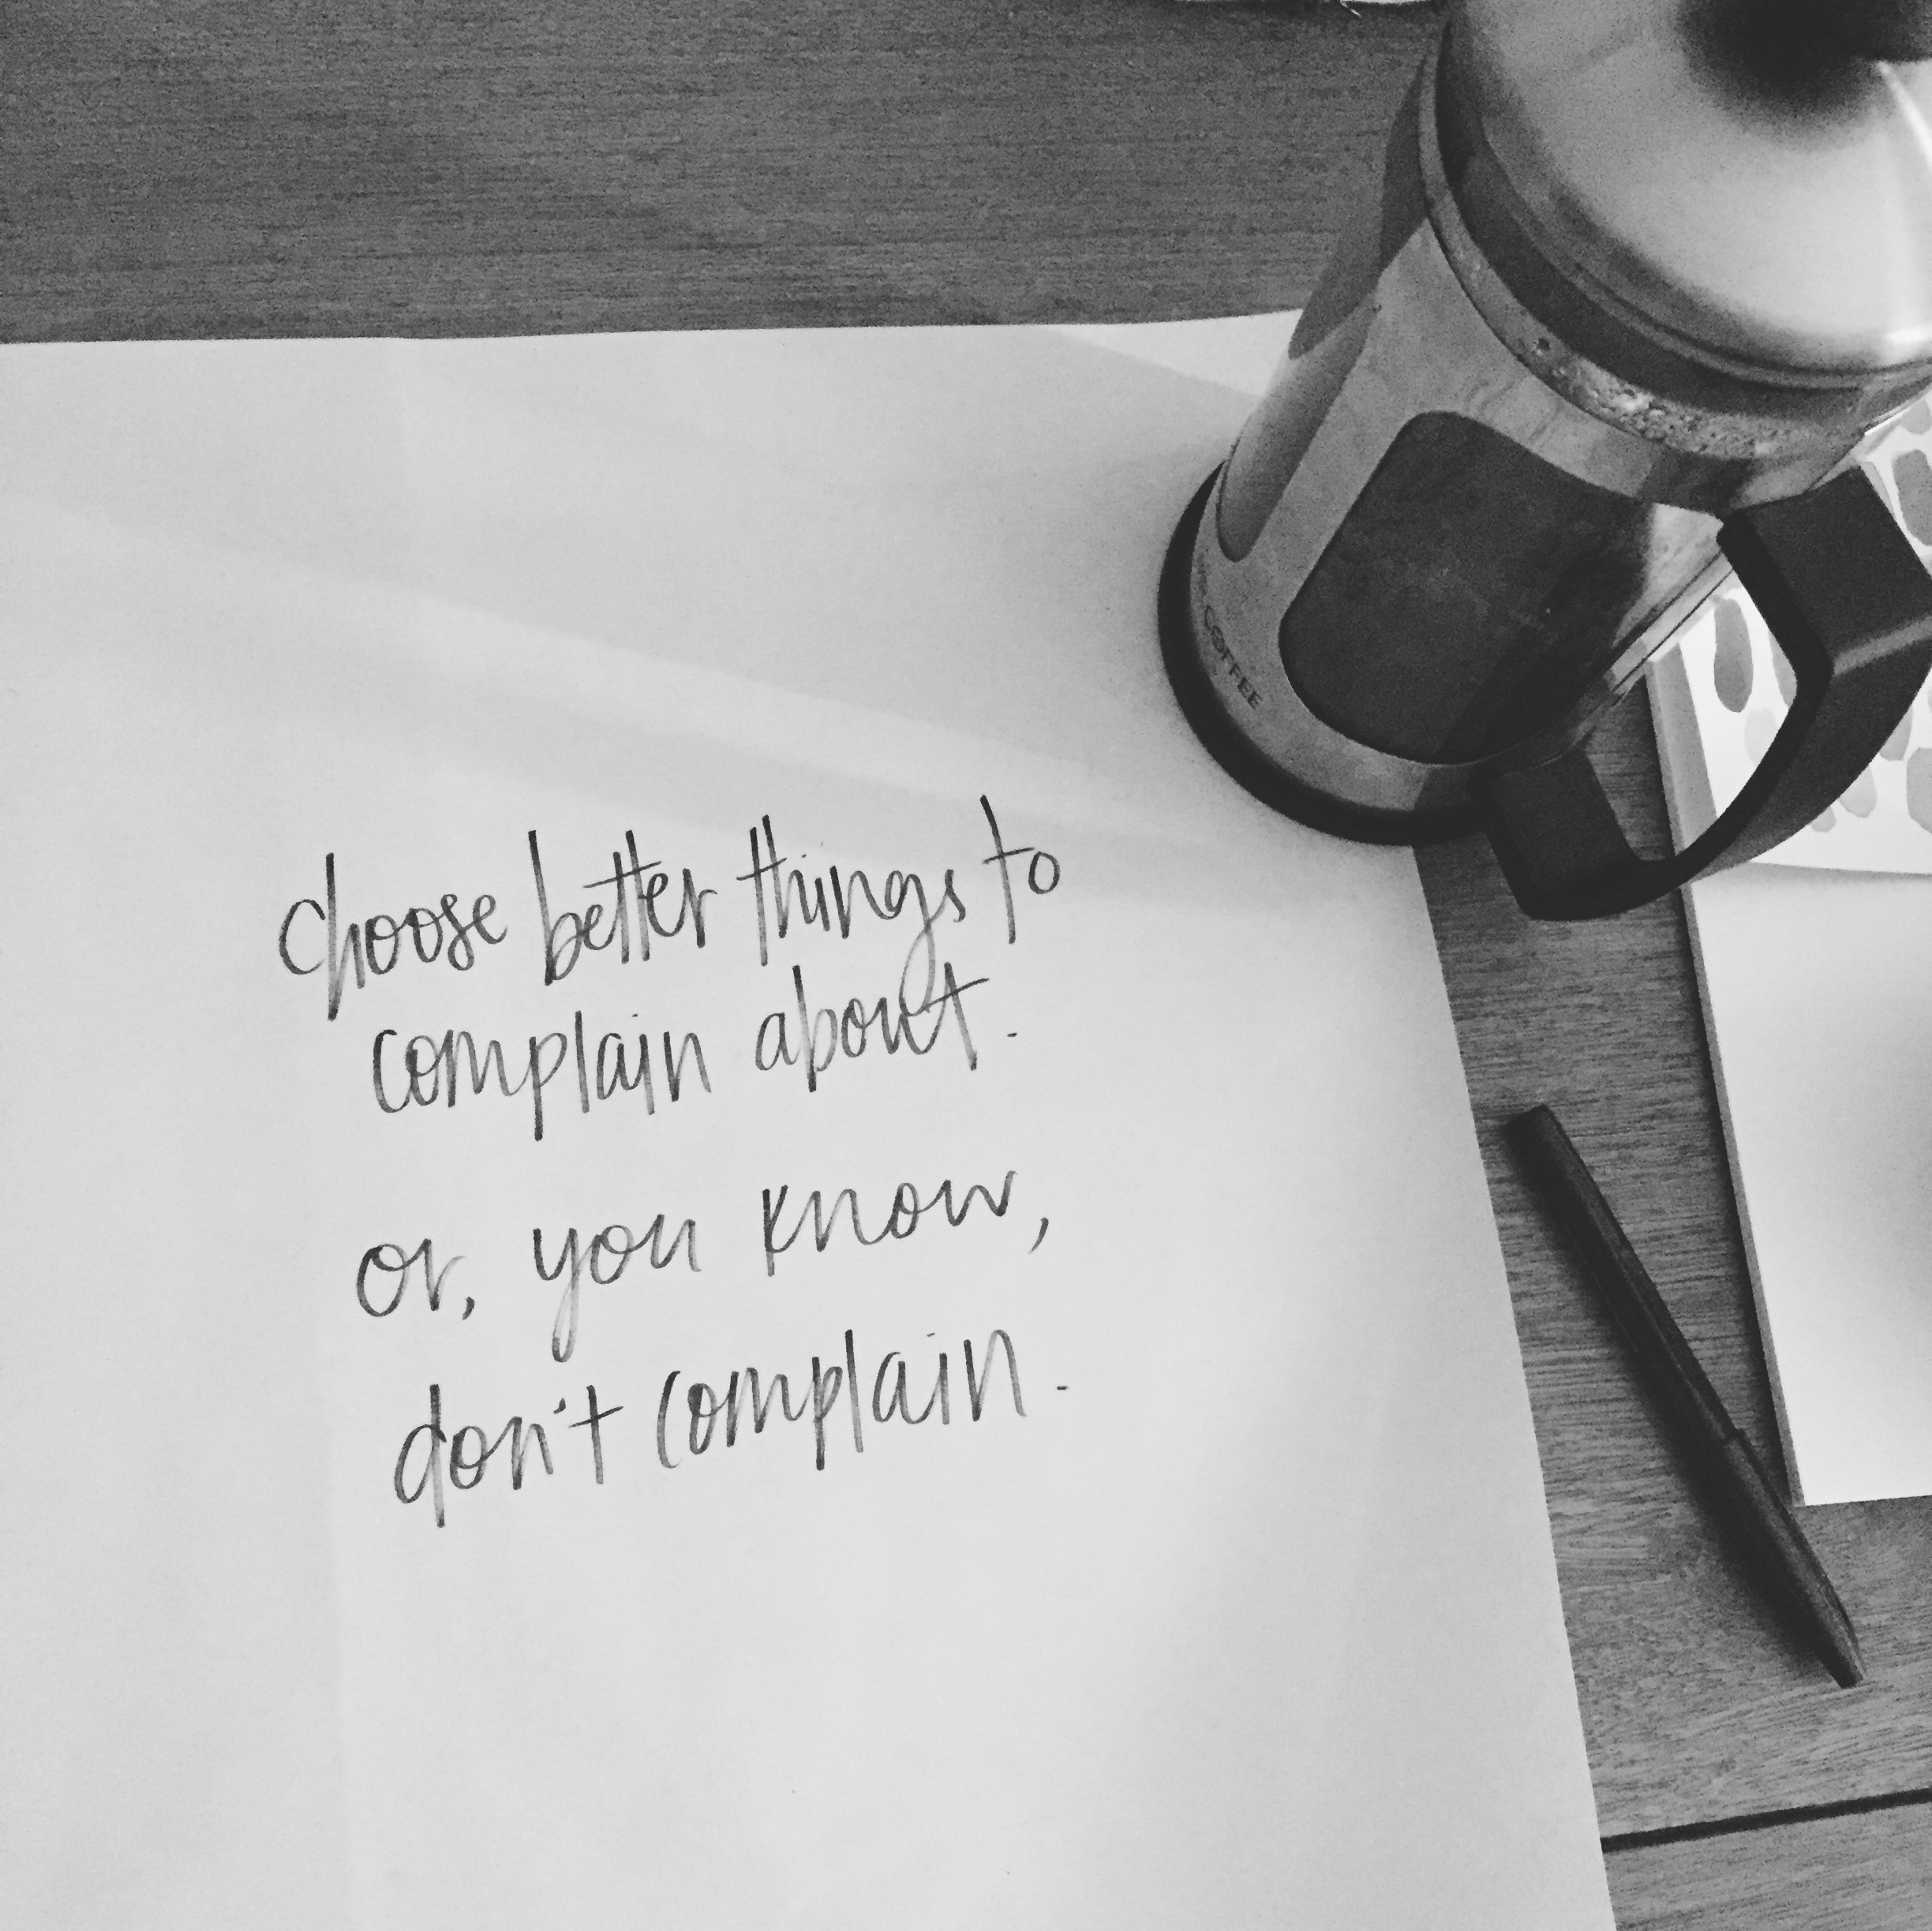 choose better things to
complain about.
or, you know,
don't complain.
COFFEE